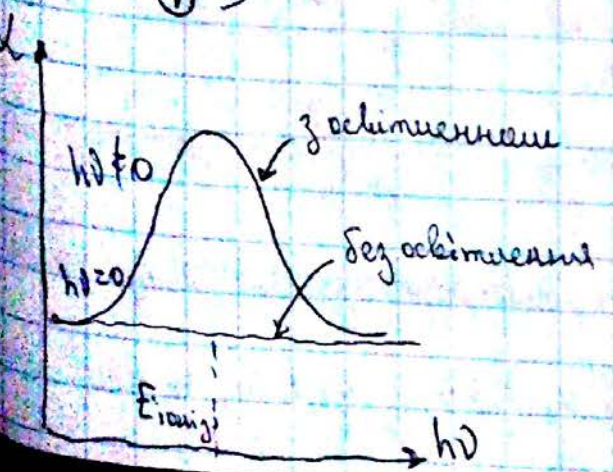 α
з освітленням
hν ≠ 0
без освітлення
hν=0
Eіоніз
hν